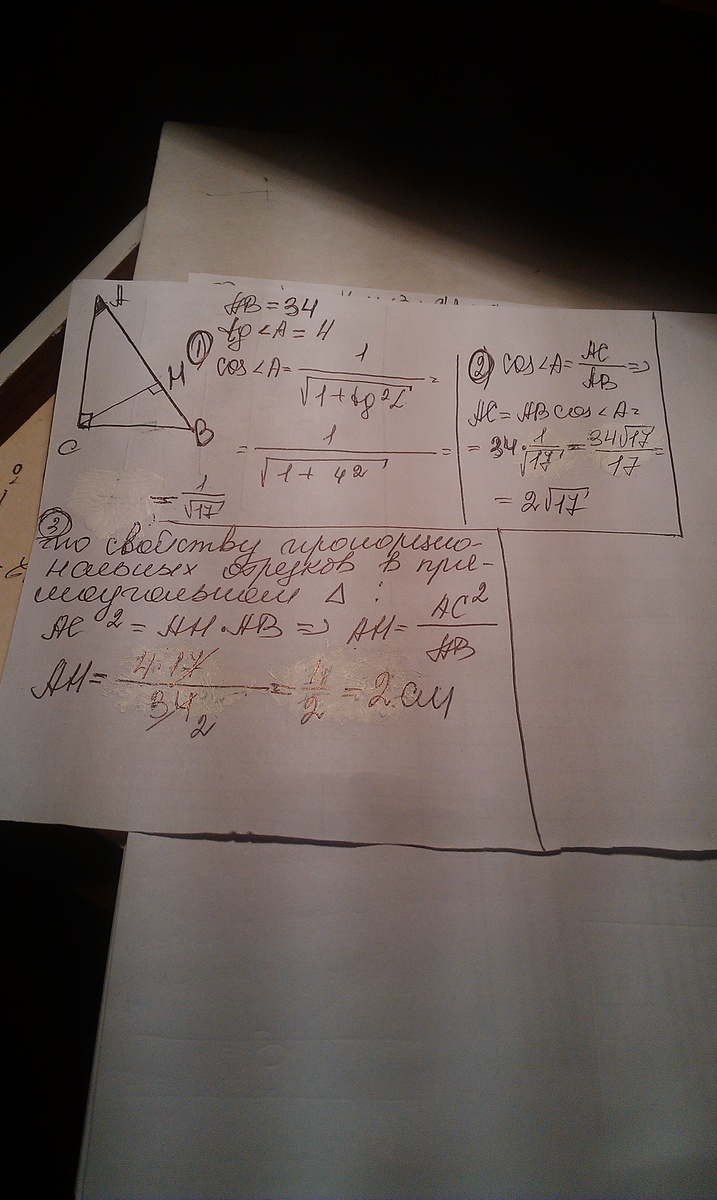 A
H
B
C
AB = 34
tg ∠A = 4
① cos ∠A = 1/√(1+tg²∠) =
= 1/√(1+4²) =
= 1/√17
② cos ∠A = AC/AB ⇒
AC = AB cos ∠A =
= 34 · 1/√17 = 34√17/17 =
= 2√17
③
по свойству пропорцио-
нальных отрезков в пря-
моугольном Δ :
AC² = AH · AB ⇒ AH = AC²/AB
AH = 4·17/34 2 = 4/2 = 2 см